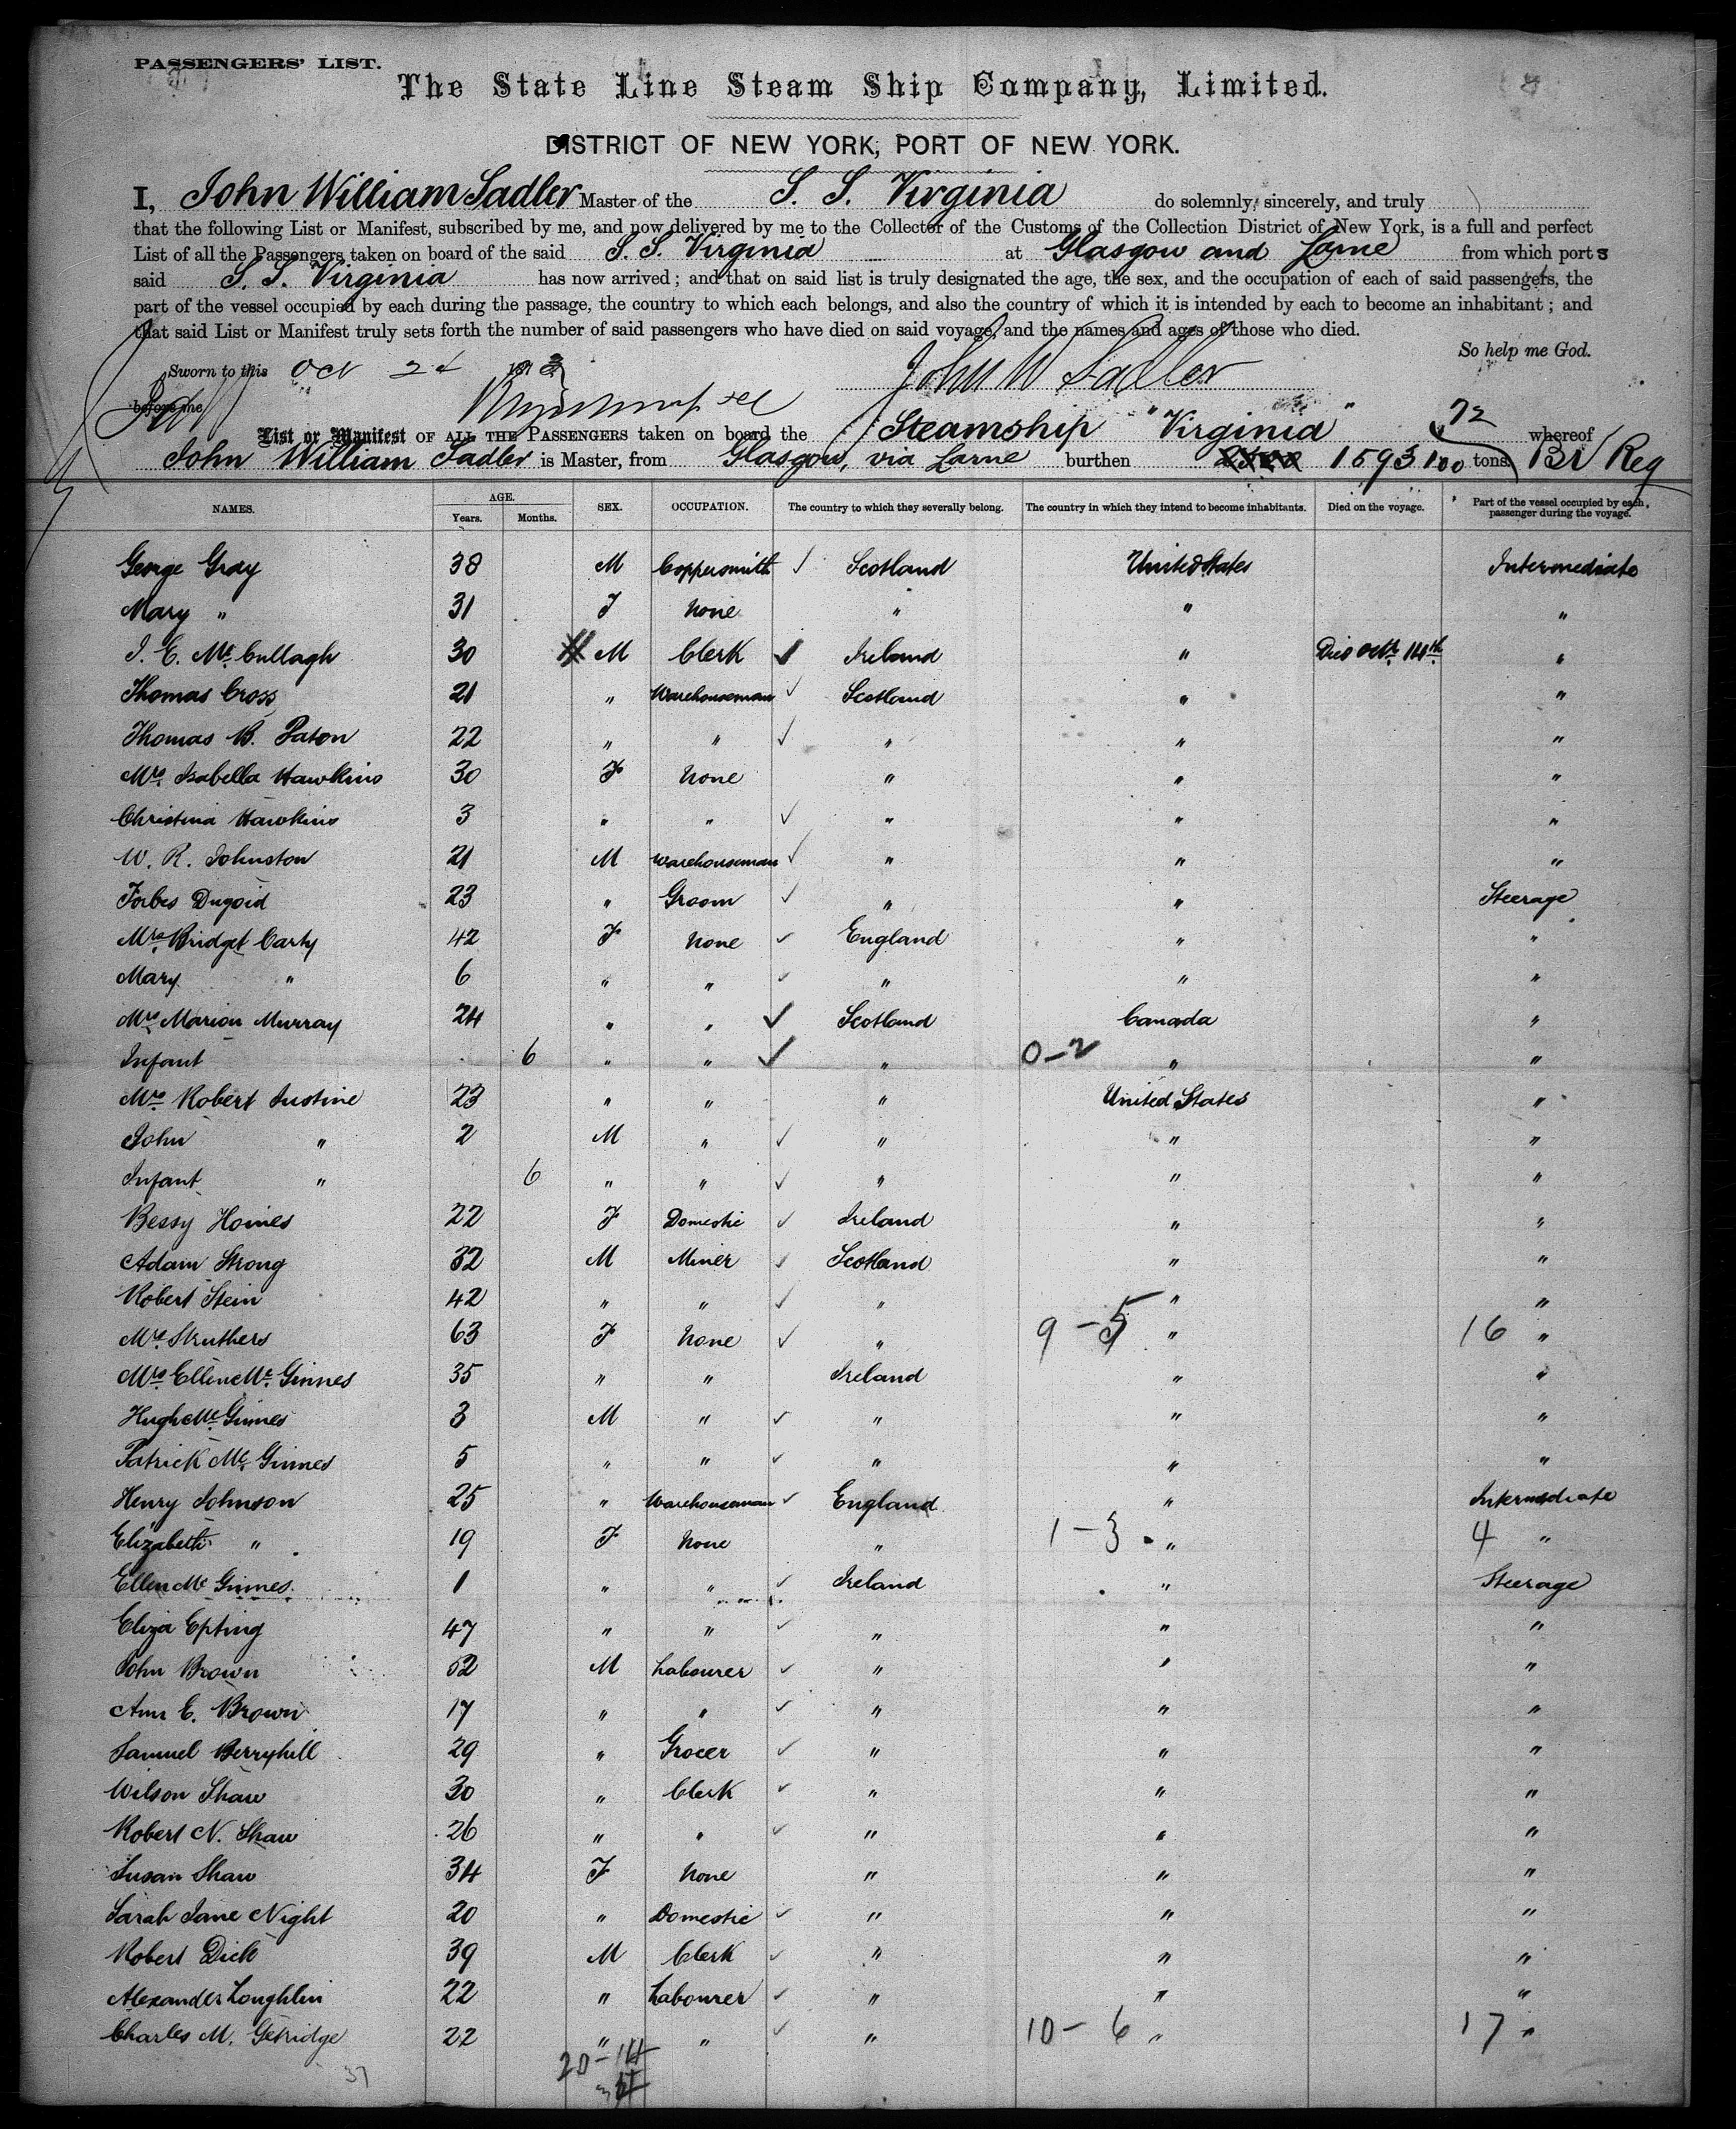 PASSENGERS' LIST.
The State Line Steam Ship Company, Limited.
DISTRICT OF NEW YORK, PORT OF NEW YORK.
I, John William Sadler Master of the S. S. Virginia do solemnly, sincerely, and truly
that the following List or Manifest, subscribed by me, and now delivered by me to the Collector of the Customs of the Collection District of New York, is a full and perfect
List of all the Passengers taken on board of the said S. S. Virginia at Glasgow and Larne from which ports
said S. S. Virginia has now arrived; and that on said list is truly designated the age, the sex, and the occupation of each of said passengers, the
part of the vessel occupied by each during the passage, the country to which each belongs, and also the country of which it is intended by each to become an inhabitant; and
that said List or Manifest truly sets forth the number of said passengers who have died on said voyage, and the names and ages of those who died.
So help me God.
Sworn to this Oct 2d
John W Sadler
before me
List or Manifest OF ALL THE PASSENGERS taken on board the Steamship "Virginia" whereof
John William Sadler is Master, from Glasgow, via Larne burthen 1593 72/100 tons. Br Reg
NAMES. AGE. Years. Months. SEX. OCCUPATION. The country to which they severally belong. The country in which they intend to become inhabitants. Died on the voyage. Part of the vessel occupied by each passenger during the voyage.
George Gray 38 M Coppersmith Scotland United States Intermediate
Mary " 31 F None " " "
J. E. McCullagh 30 M Clerk Ireland " Died Octr. 14th "
Thomas Cross 21 " Warehouseman Scotland " "
Thomas B. Paton 22 " " " " "
Mrs. Isabella Hawkins 30 F None " " "
Christina Hawkins 3 " " " " "
W. R. Johnston 21 M Warehouseman " " "
Forbes Dugoid 23 " Groom " " Steerage
Mrs Bridget Carty 42 F None England " "
Mary " 6 " " " " "
Mrs Marion Murray 24 " " Scotland Canada "
Infant 6 " " " 0-2 " "
Mrs Robert Justine 23 " " " United States "
John " 2 M " " " "
Infant " 6 " " " " "
Bessy Hoines 22 F Domestic Ireland " "
Adam Strong 32 M Miner Scotland " "
Robert Stein 42 " " " " "
Mrs. Struthers 63 F None " 9-5 " 16 "
Mrs Ellen McGinnes 35 " " Ireland " "
Hugh McGinnes 3 M " " " "
Patrick McGinnes 5 " " " " "
Henry Johnson 25 " Warehouseman England " Intermediate
Elizabeth " 19 F None " 1-3 " 4 "
Ellen McGinnes. 1 " " Ireland " Steerage
Eliza Epting 47 " " " " "
John Brown 52 M Labourer " " "
Ann E. Brown 17 " " " " "
Samuel Berryhill 29 " Grocer " " "
Wilson Shaw 30 " Clerk " " "
Robert N. Shaw 26 " " " " "
Susan Shaw 34 F None " " "
Sarah Jane Night 20 " Domestic " " "
Robert Dick 39 M Clerk " " "
Alexander Loughlin 22 " Labourer " " "
Charles M. Getridge 22 " " " 10-6 " 17 "
37 20-14